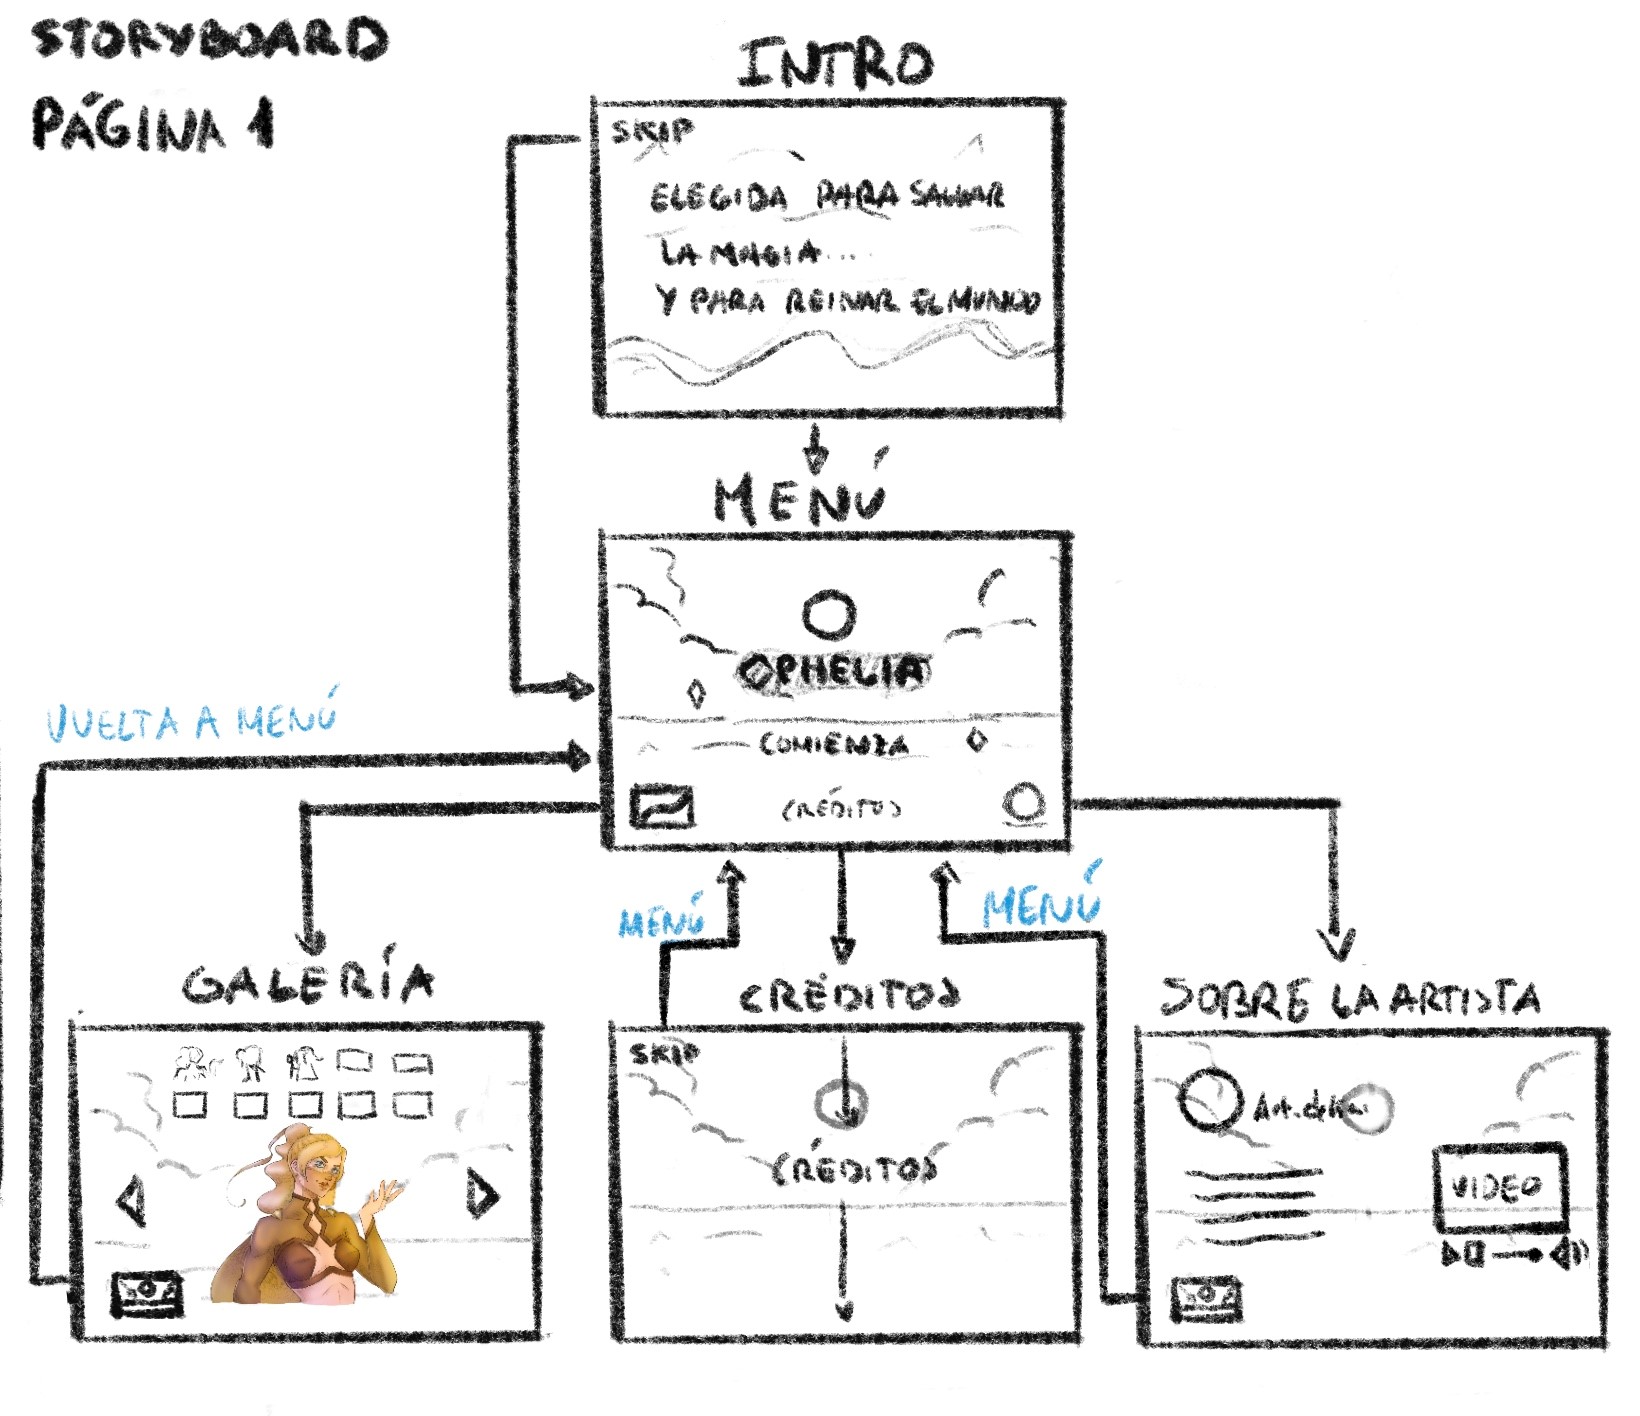 STORYBOARD
PÁGINA 1
INTRO
SKIP
ELEGIDA PARA SALVAR
LA MAGIA....
Y PARA REINAR EL MUNDO
MENÚ
OPHELIA
COMIENZA
CRÉDITOS
VUELTA A MENÚ
MENÚ
MENÚ
GALERÍA
CRÉDITOS
SKIP
CRÉDITOS
SOBRE LA ARTISTA
VIDEO